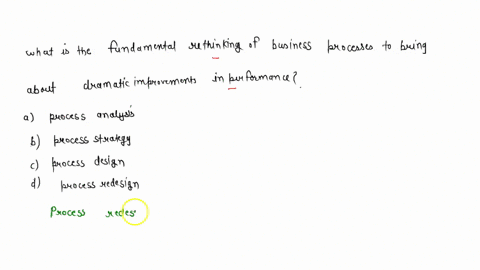 what is the fundamental rethinking of business processes to bring
about dramatic improvements in performance?
a) process analysis
b) process strategy
c) process design
d) process redesign
Process redes